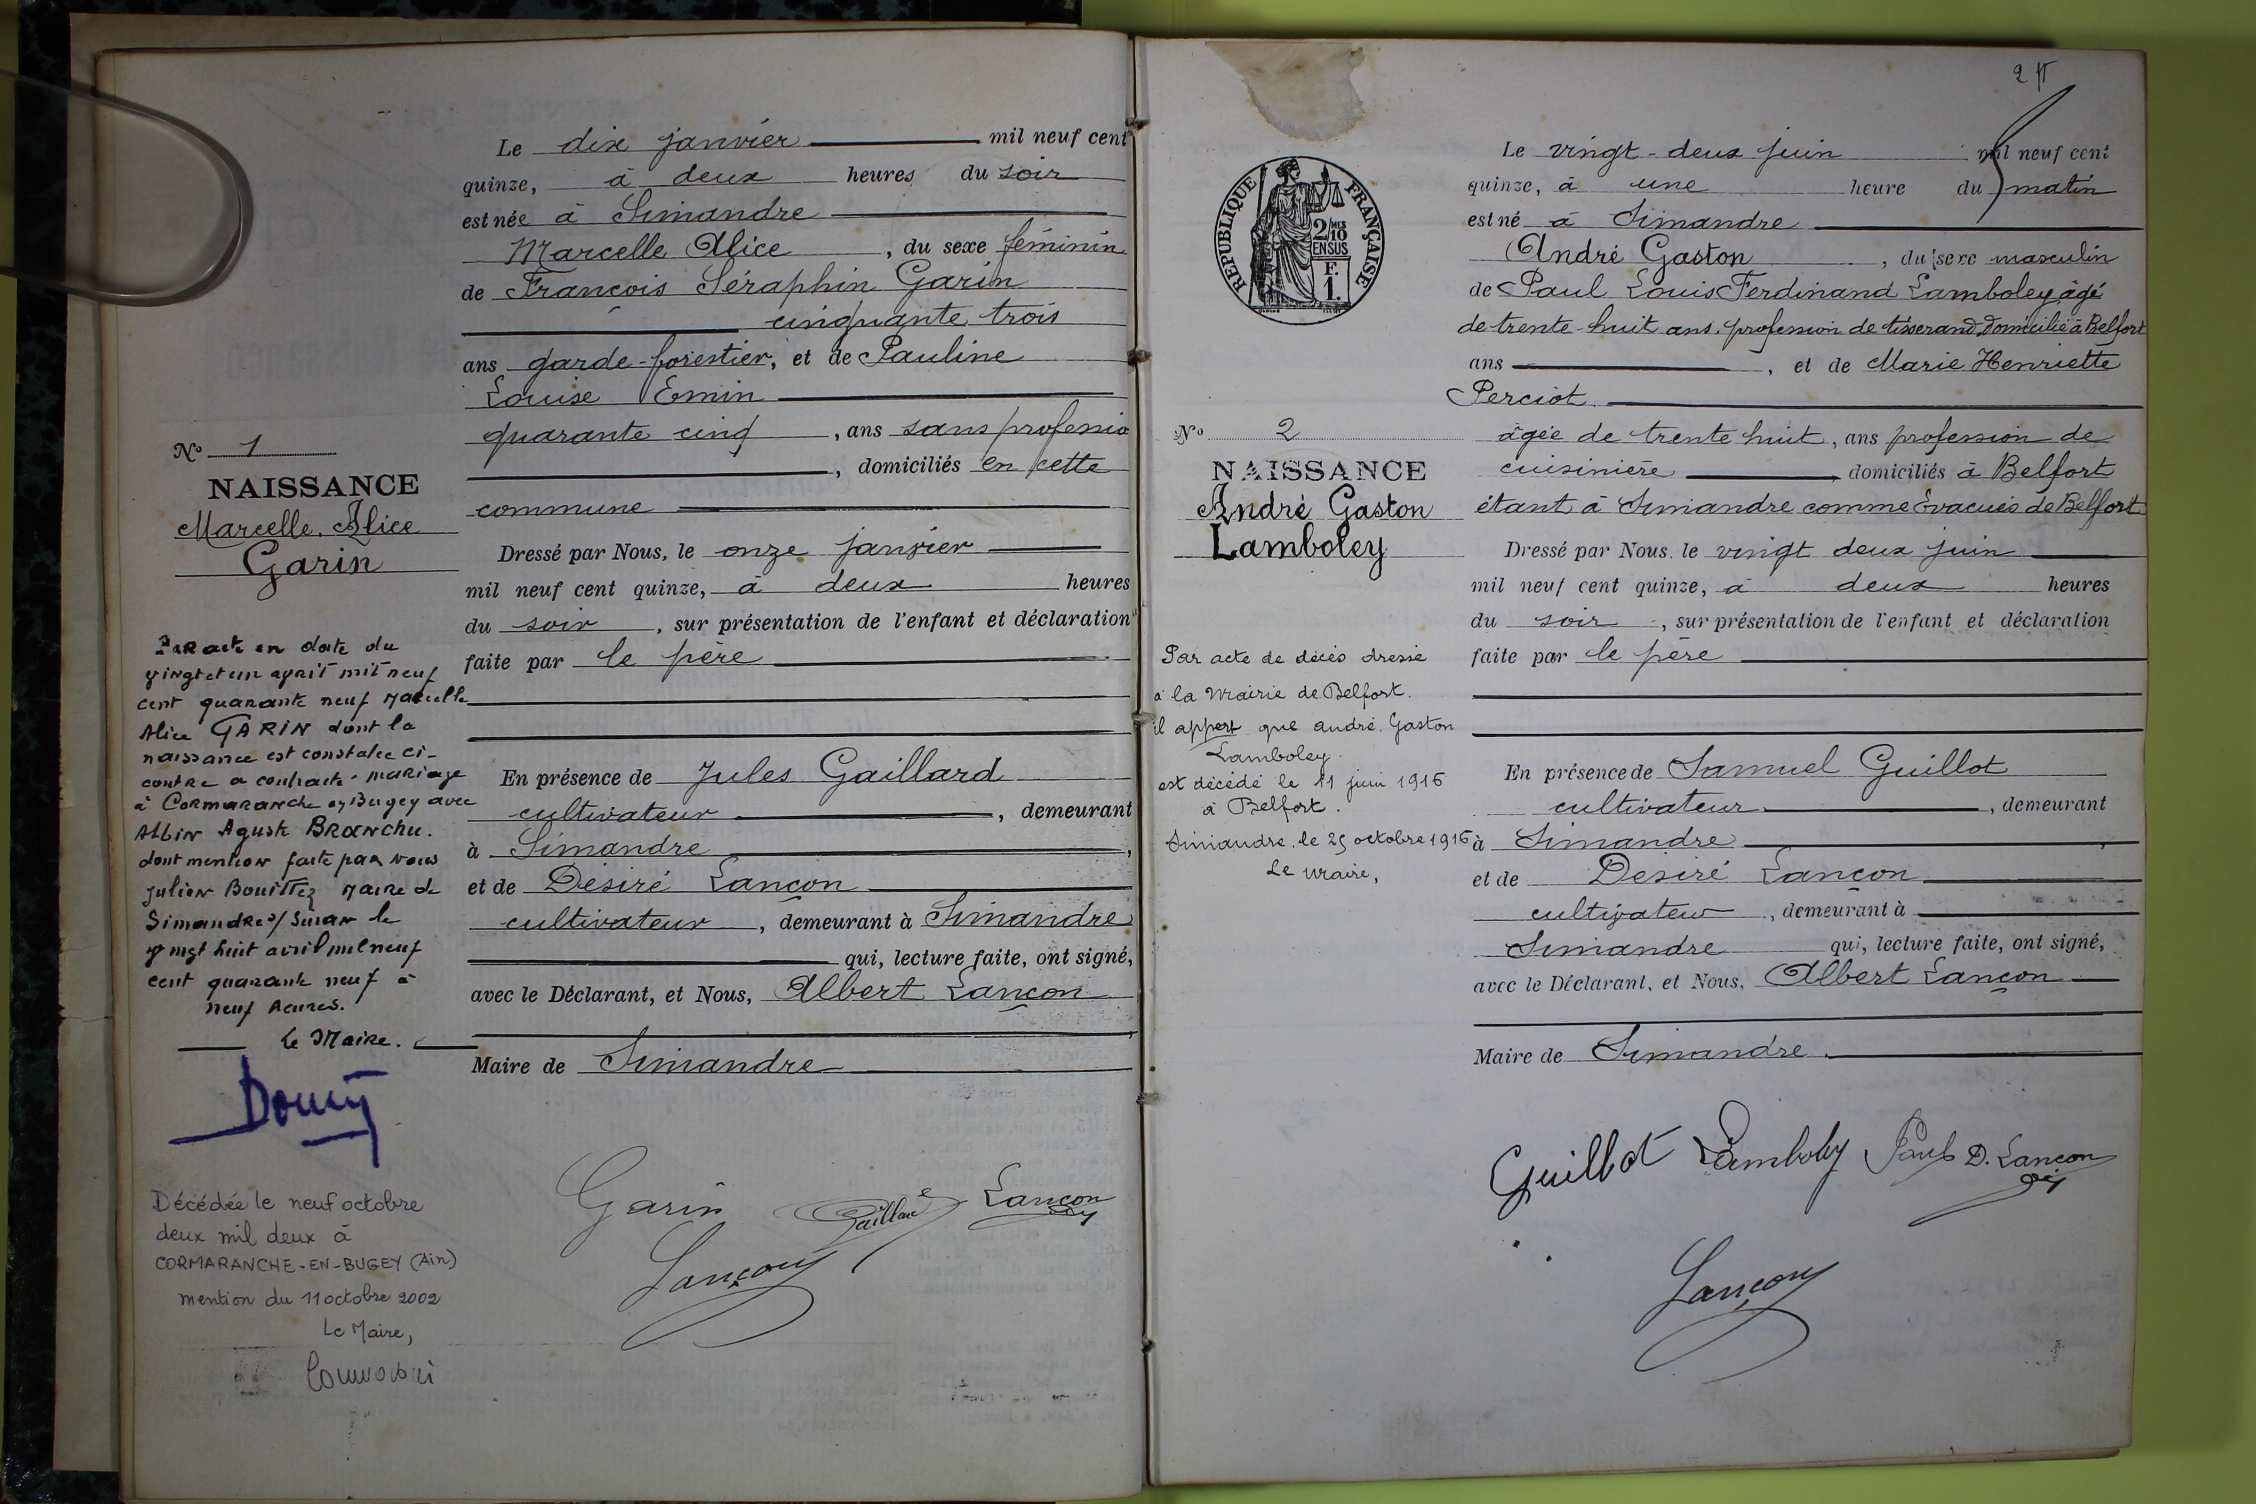 Le dix janvier mil neuf cent
quinze, à deux heures du soir
est née à Simandre
Marcelle Alice, du sexe féminin
de François Séraphin Garin
cinquante trois
ans garde-forestier, et de Pauline
Louise Emin
quarante cinq, ans sans professio
, domiciliés en cette
commune
Dressé par Nous, le onze janvier
mil neuf cent quinze, à deux heures
du soir, sur présentation de l'enfant et déclaration
faite par le père
En présence de Jules Gaillard
cultivateur, demeurant
à Simandre,
et de Désiré Lançon
cultivateur, demeurant à Simandre
qui, lecture faite, ont signé,
avec le Déclarant, et Nous, Albert Lançon
Maire de Simandre
Garin Gaillard Lançon
Lançon
No 1
NAISSANCE
Marcelle, Alice
Garin
Par acte en date du
vingt et un avril mil neuf
cent quarante neuf Marcelle
Alice GARIN dont la
naissance est constatée ci-
contre a contracté mariage
à Cormaranche en Bugey avec
Albin Aguste Branchu.
dont mention faite par nous
Julien Bouillez Maire de
Simandre s/ Suran le
vingt huit avril mil neuf
cent quarante neuf à
neuf heures.
Le Maire.
Décédée le neuf octobre
deux mil deux à
CORMARANCHE-EN-BUGEY (Ain)
mention du 11 octobre 2002
Le Maire,
2
Le vingt-deux juin mil neuf cent
quinze, à une heure du matin
est né à Simandre
André Gaston, du sexe masculin
de Paul Louis Ferdinand Lamboley âgé
de trente-huit ans, profession de tisserand, domicilié à Belfort
ans, et de Marie Henriette
Perciot
âgée de trente huit, ans profession de
cuisinière, domiciliés à Belfort
étant à Simandre comme Evacués de Belfort
Dressé par Nous, le vingt deux juin
mil neuf cent quinze, à deux heures
du soir, sur présentation de l'enfant et déclaration
faite par le père
En présence de Samuel Guillot
cultivateur, demeurant
à Simandre,
et de Désiré Lançon
cultivateur, demeurant à
Simandre qui, lecture faite, ont signé,
avec le Déclarant, et Nous, Albert Lançon
Maire de Simandre
Guillot Lamboley Paul D. Lançon
Lançon
RÉPUBLIQUE FRANÇAISE
2/10 MES
EN SUS
F.
1.
No 2
NAISSANCE
André Gaston
Lamboley
Par acte de décès dressé
à la Mairie de Belfort.
il appert que André Gaston
Lamboley
est décédé le 11 juin 1916
à Belfort.
Simandre, le 25 octobre 1916
Le Maire,